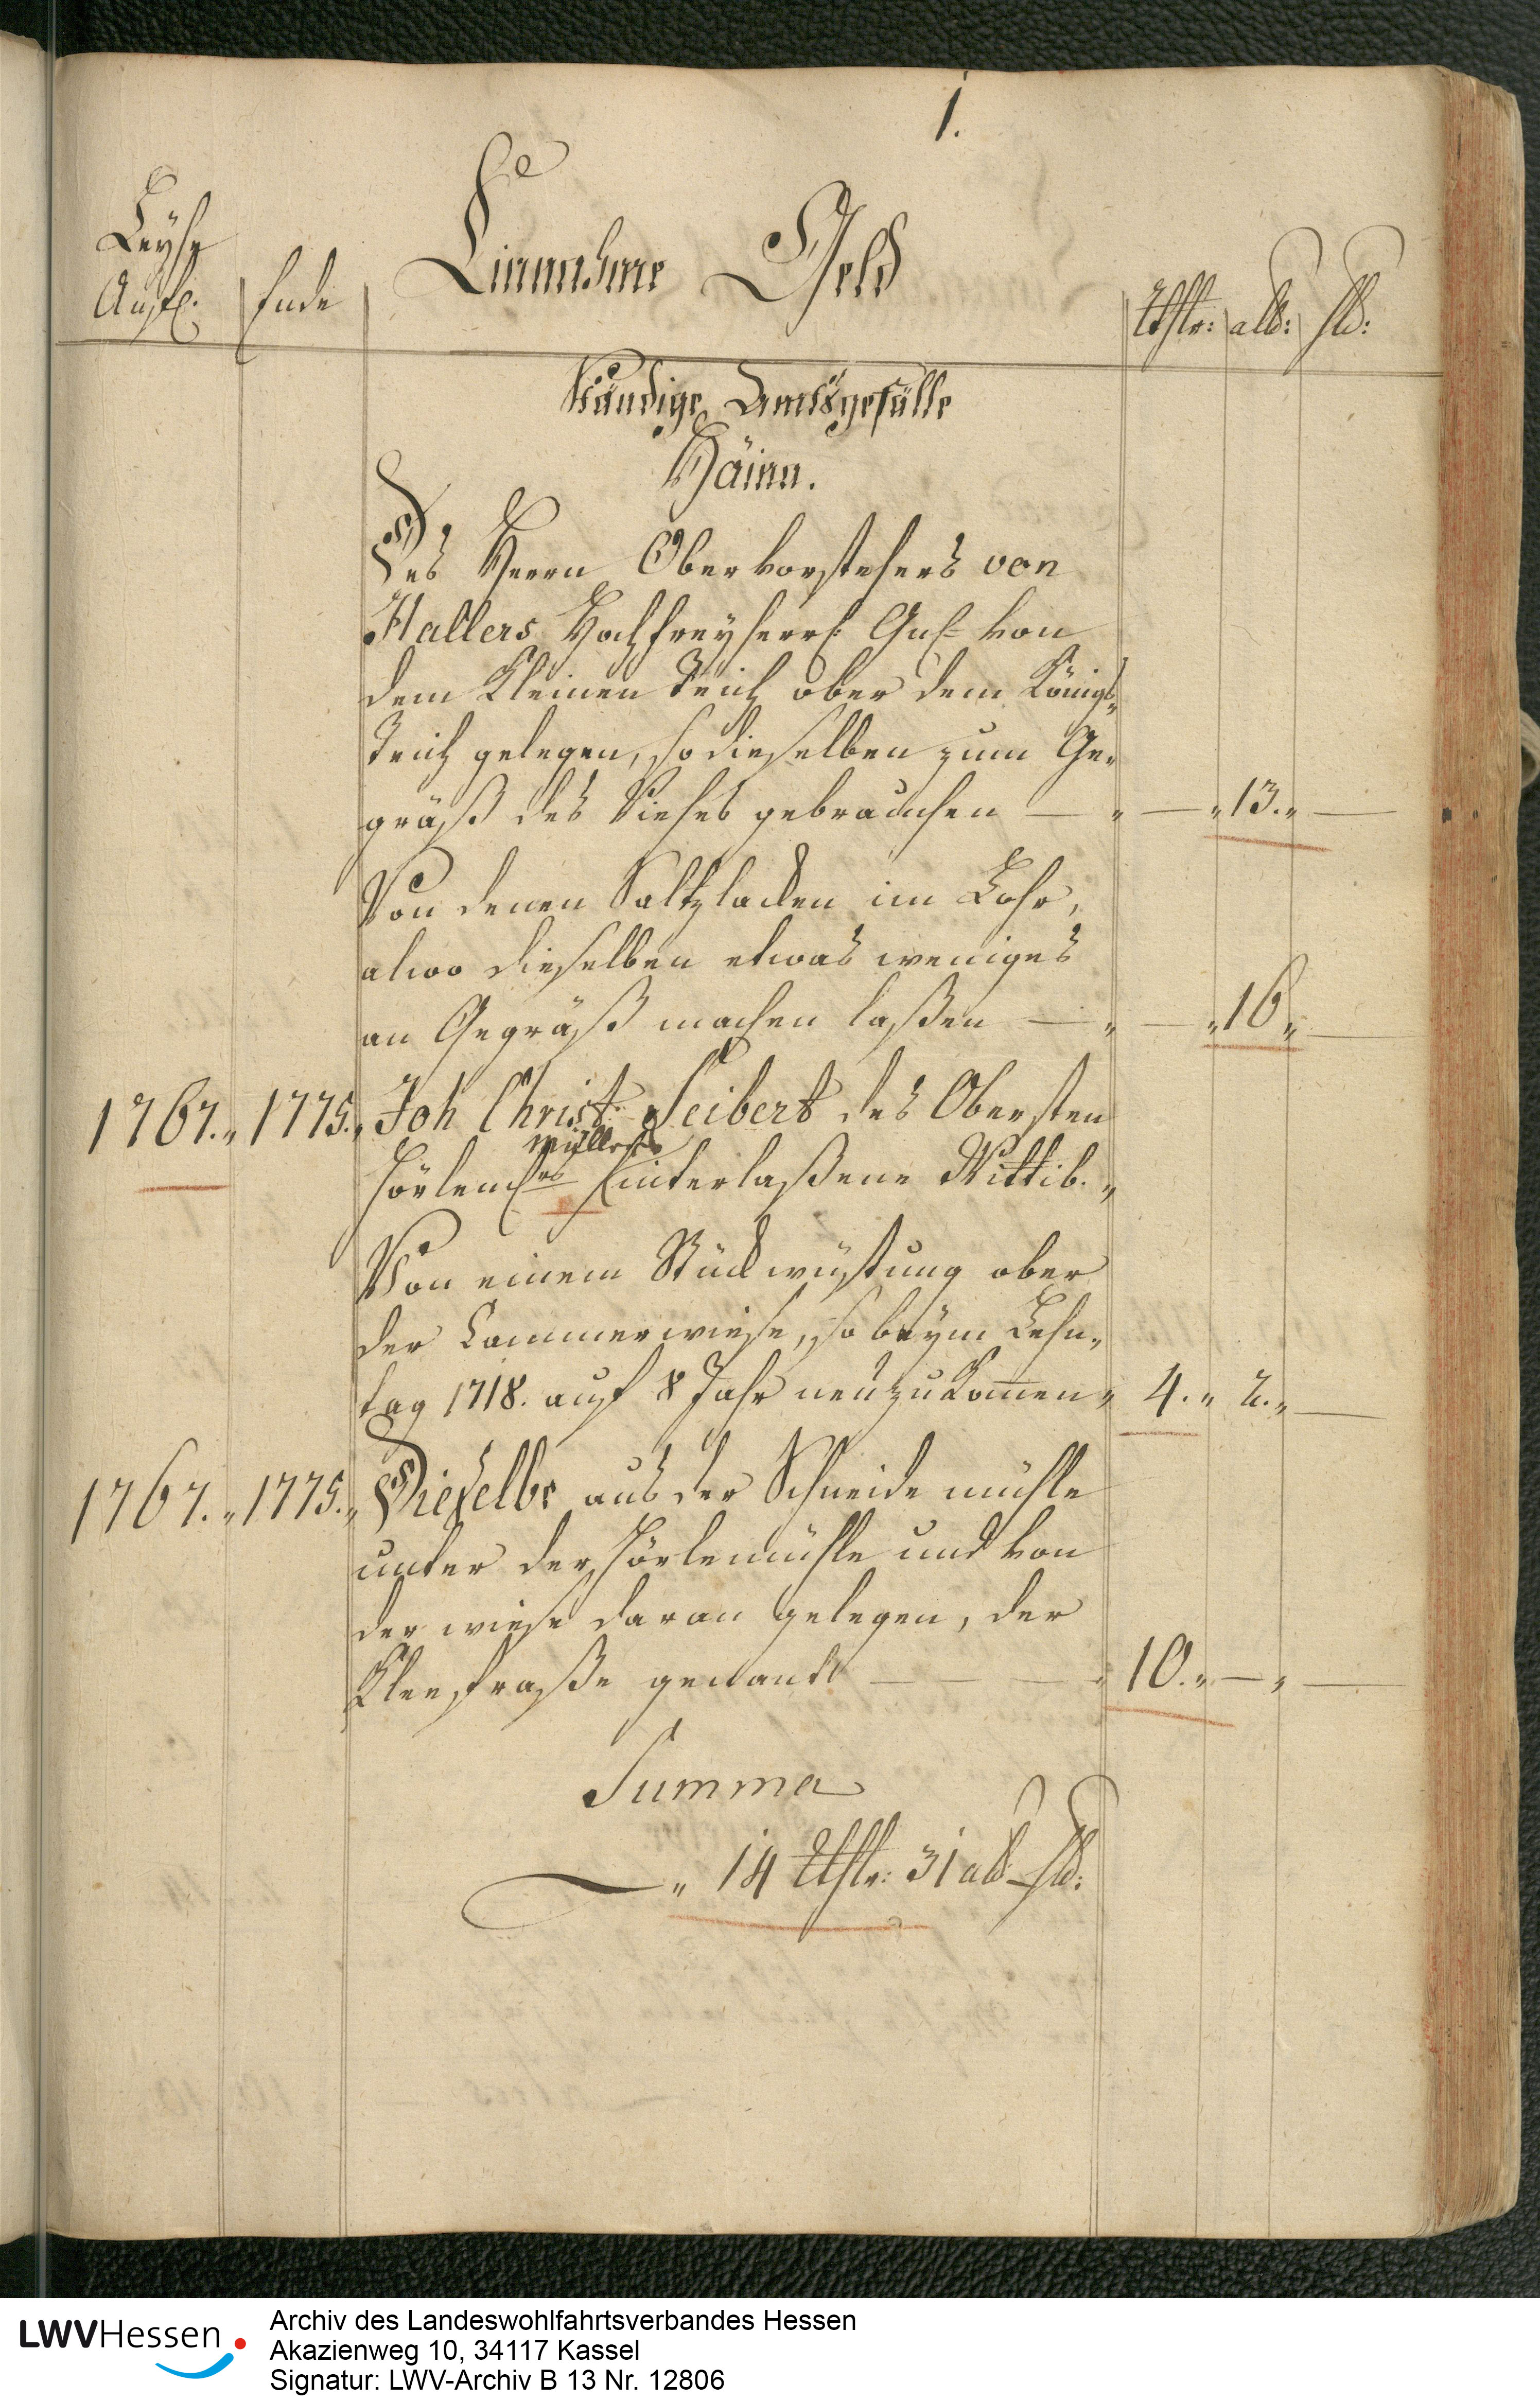 1.
Leyhe
Anf. Ende
Einnahme Geld
Rthlr: alb: hlr:
Ständige Amtsgefälle
Häina.
Des Herrn Obervorstehers von
Hallers Hochfreyherrl. Gn. von
dem Kleinen Teich ober dem Königs-
teich gelegen, so dieselben zum Ge-
gräß des Viehes gebrauchen — " — " 13. " —
Von denen Saltzlacken im Lohr,
alwo dieselben etwas weniges
an Gegräß machen laßen — " — " 16 " —
1767. " 1775. " Joh Christ. Seibert des Obersten
Müllers
hinterlaßene Wittib. "
Von einem Stück wüstung ober
der Cammerwiese, so beym Lehn-
tag 1718. auf 8 Jahr neu zukomen " 4. " 2. " —
1767. " 1775. " Dieselbe aus der Schneide mühle
unter der Hörlemühle und von
der wiese daran gelegen, der
Kleestraße genant — — — " 10. " — " —
Summa
" 14 Rthlr: 31 alb — hlr:
LWVHessen
Archiv des Landeswohlfahrtsverbandes Hessen
Akazienweg 10, 34117 Kassel
Signatur: LWV-Archiv B 13 Nr. 12806